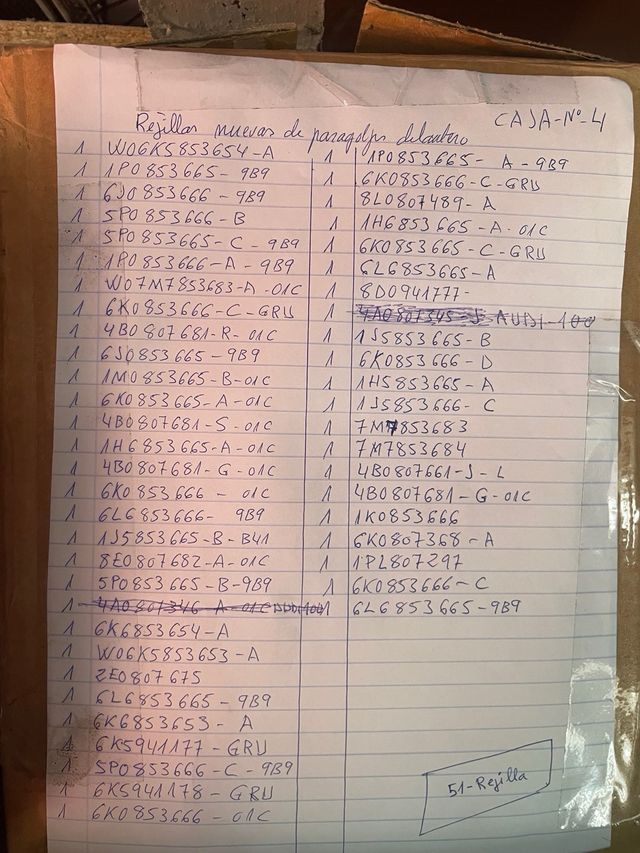 CAJA-Nº-4
Rejillas nuevas de paragolps delantero
1 W06K5853654-A
1 1P0853665-9B9
1 6J0853666-9B9
1 5P0853666-B
1 5P0853665-C-9B9
1 1P0853666-A-9B9
1 W07M7853683-A-01C
1 6K0853666-C-GRU
1 4B0807681-R-01C
1 6J0853665-9B9
1 1M0853665-B-01C
1 6K0853665-A-01C
1 4B0807681-S-01C
1 1H6853665-A-01C
1 4B0807681-G-01C
1 6K0853666-01C
1 6L6853666-9B9
1 1J5853665-B-B41
1 8E0807682-A-01C
1 5P0853665-B-9B9
1 4A0807346-A-01C
1 6K6853654-A
1 W06K5853653-A
1 2E0807675
1 6L6853665-9B9
1 6K6853653-A
1 6K5941177-GRU
1 5P0853666-C-9B9
1 6K5941178-GRU
1 6K0853666-01C
1 1P0853665-A-9B9
1 6K0853666-C-GRU
1 8L0807489-A
1 1H6853665-A-01C
1 6K0853665-C-GRU
1 6L6853665-A
1 8D0941777-
1 4A0807345-J-AUDI-100
1 1J5853665-B
1 6K0853666-D
1 1H5853665-A
1 1J5853666-C
1 7M7853683
1 7M7853684
1 4B0807661-J-L
1 4B0807681-G-01C
1 1K0853666
1 6K0807368-A
1 1PL807297
1 6K0853666-C
1 6L6853665-9B9
51-Rejilla